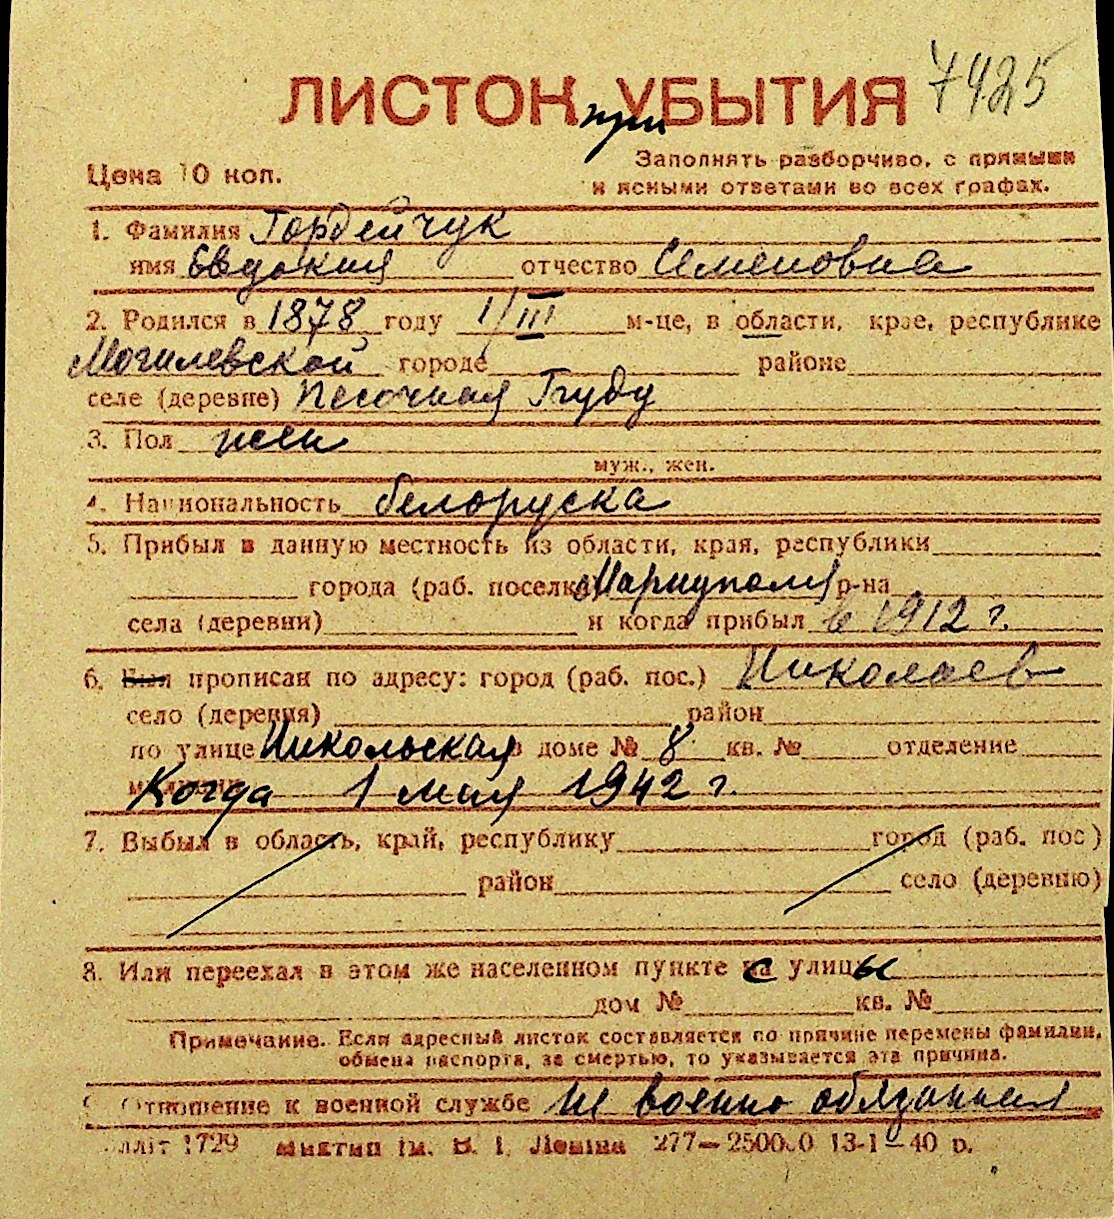 7425
ЛИСТОК при УБЫТИЯ
Цена 10 коп.
Заполнять разборчиво, с прямыми
и ясными ответами во всех графах.
1. Фамилия Гордейчук
имя Евдокия отчество Семеновна
2. Родился в 1878 году 1/III м-це, в области, крае, республике
Могилевской городе районе
селе (деревне) Песочная Груду
3. Пол жен
муж., жен.
4. Национальность белоруска
5. Прибыл в данную местность из области, края, республики
города (раб. поселка) Мариуполя р-на
села (деревни) и когда прибыл в 1912 г.
6. Был прописан по адресу: город (раб. пос.) Николаев
село (деревня) район
по улице Никольская в доме № 8 кв. № отделение
милиции Когда 1 мая 1942 г.
7. Выбыл в область, край, республику город (раб. пос)
район село (деревню)
8. Или переехал в этом же населенном пункте с улицы
дом № кв. №
Примечание. Если адресный листок составляется по причине перемены фамилии,
обмена паспорта, за смертью, то указывается эта причина.
9. Отношение к военной службе не военно обязанная
1729 ім. В. І. Леніна 277— 13-1—40 р.